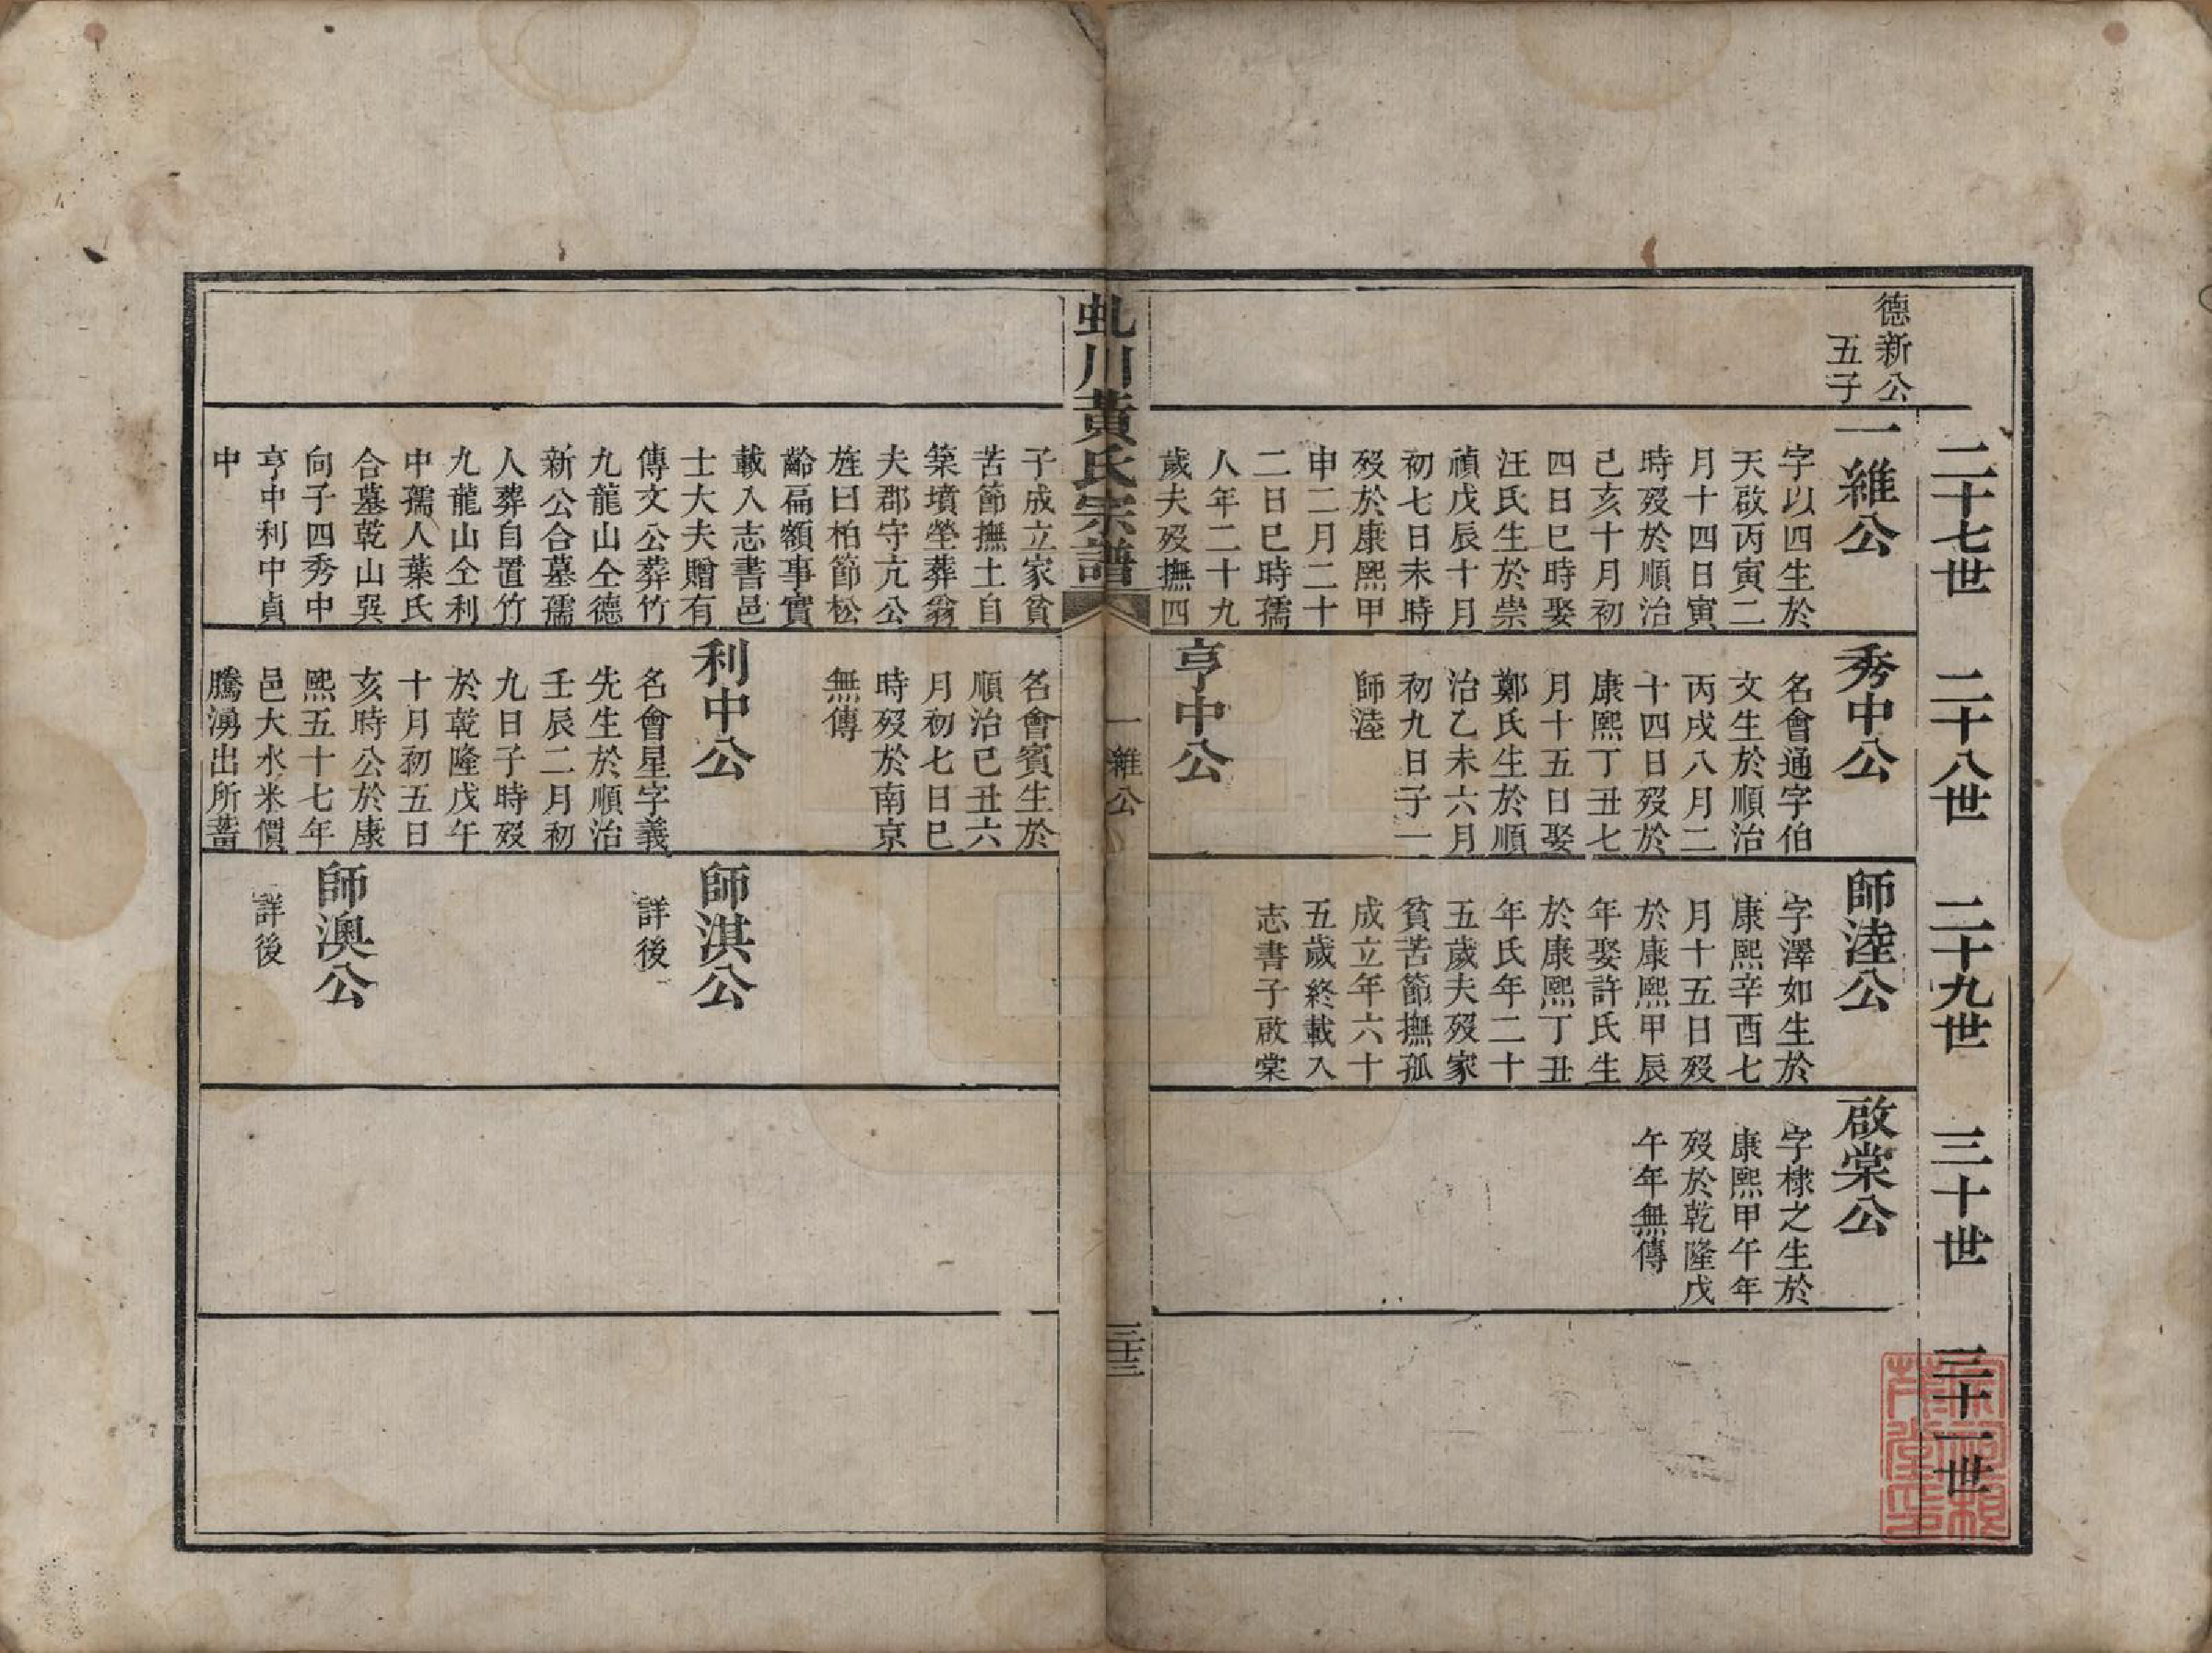 二十七世
二十八世
二十九世
三十世
三十一世
德新公
五子
一維公
字以四生於
天啟丙寅二
月十四日寅
時歿於順治
己亥十月初
四日巳時娶
汪氏生於崇
禎戊辰十月
初七日未時
歿於康熙甲
申二月二十
二日巳時孺
人年二十九
歲夫歿撫四
秀中公
名會通字伯
文生於順治
丙戌八月二
十四日歿於
康熙丁丑七
月十五日娶
鄭氏生於順
治乙未六月
初九日子一
師淕
亨中公
師淕公
字澤如生於
康熙辛酉七
月十五日歿
於康熙甲辰
年娶許氏生
於康熙丁丑
年氏年二十
五歲夫歿家
貧苦節撫孤
成立年六十
五歲終載入
志書子啟棠
啟棠公
字棣之生於
康熙甲午年
歿於乾隆戊
午年無傳
虬川黃氏宗譜
一維公
三十三
子成立家貧
苦節撫土自
築墳塋葬翁
夫郡守亢公
旌曰柏節松
齡扁額事實
載入志書邑
士大夫贈有
傳文公葬竹
九龍山仝德
新公合墓孺
人葬自置竹
九龍山仝利
中孺人葉氏
合墓乾山巽
向子四秀中
亨中利中貞
中
名會賓生於
順治己丑六
月初七日巳
時歿於南京
無傳
利中公
名會星字義
先生於順治
壬辰二月初
九日子時歿
於乾隆戊午
十月初五日
亥時公於康
熙五十七年
邑大水米價
騰湧出所蓄
師淇公
詳後
師澳公
詳後